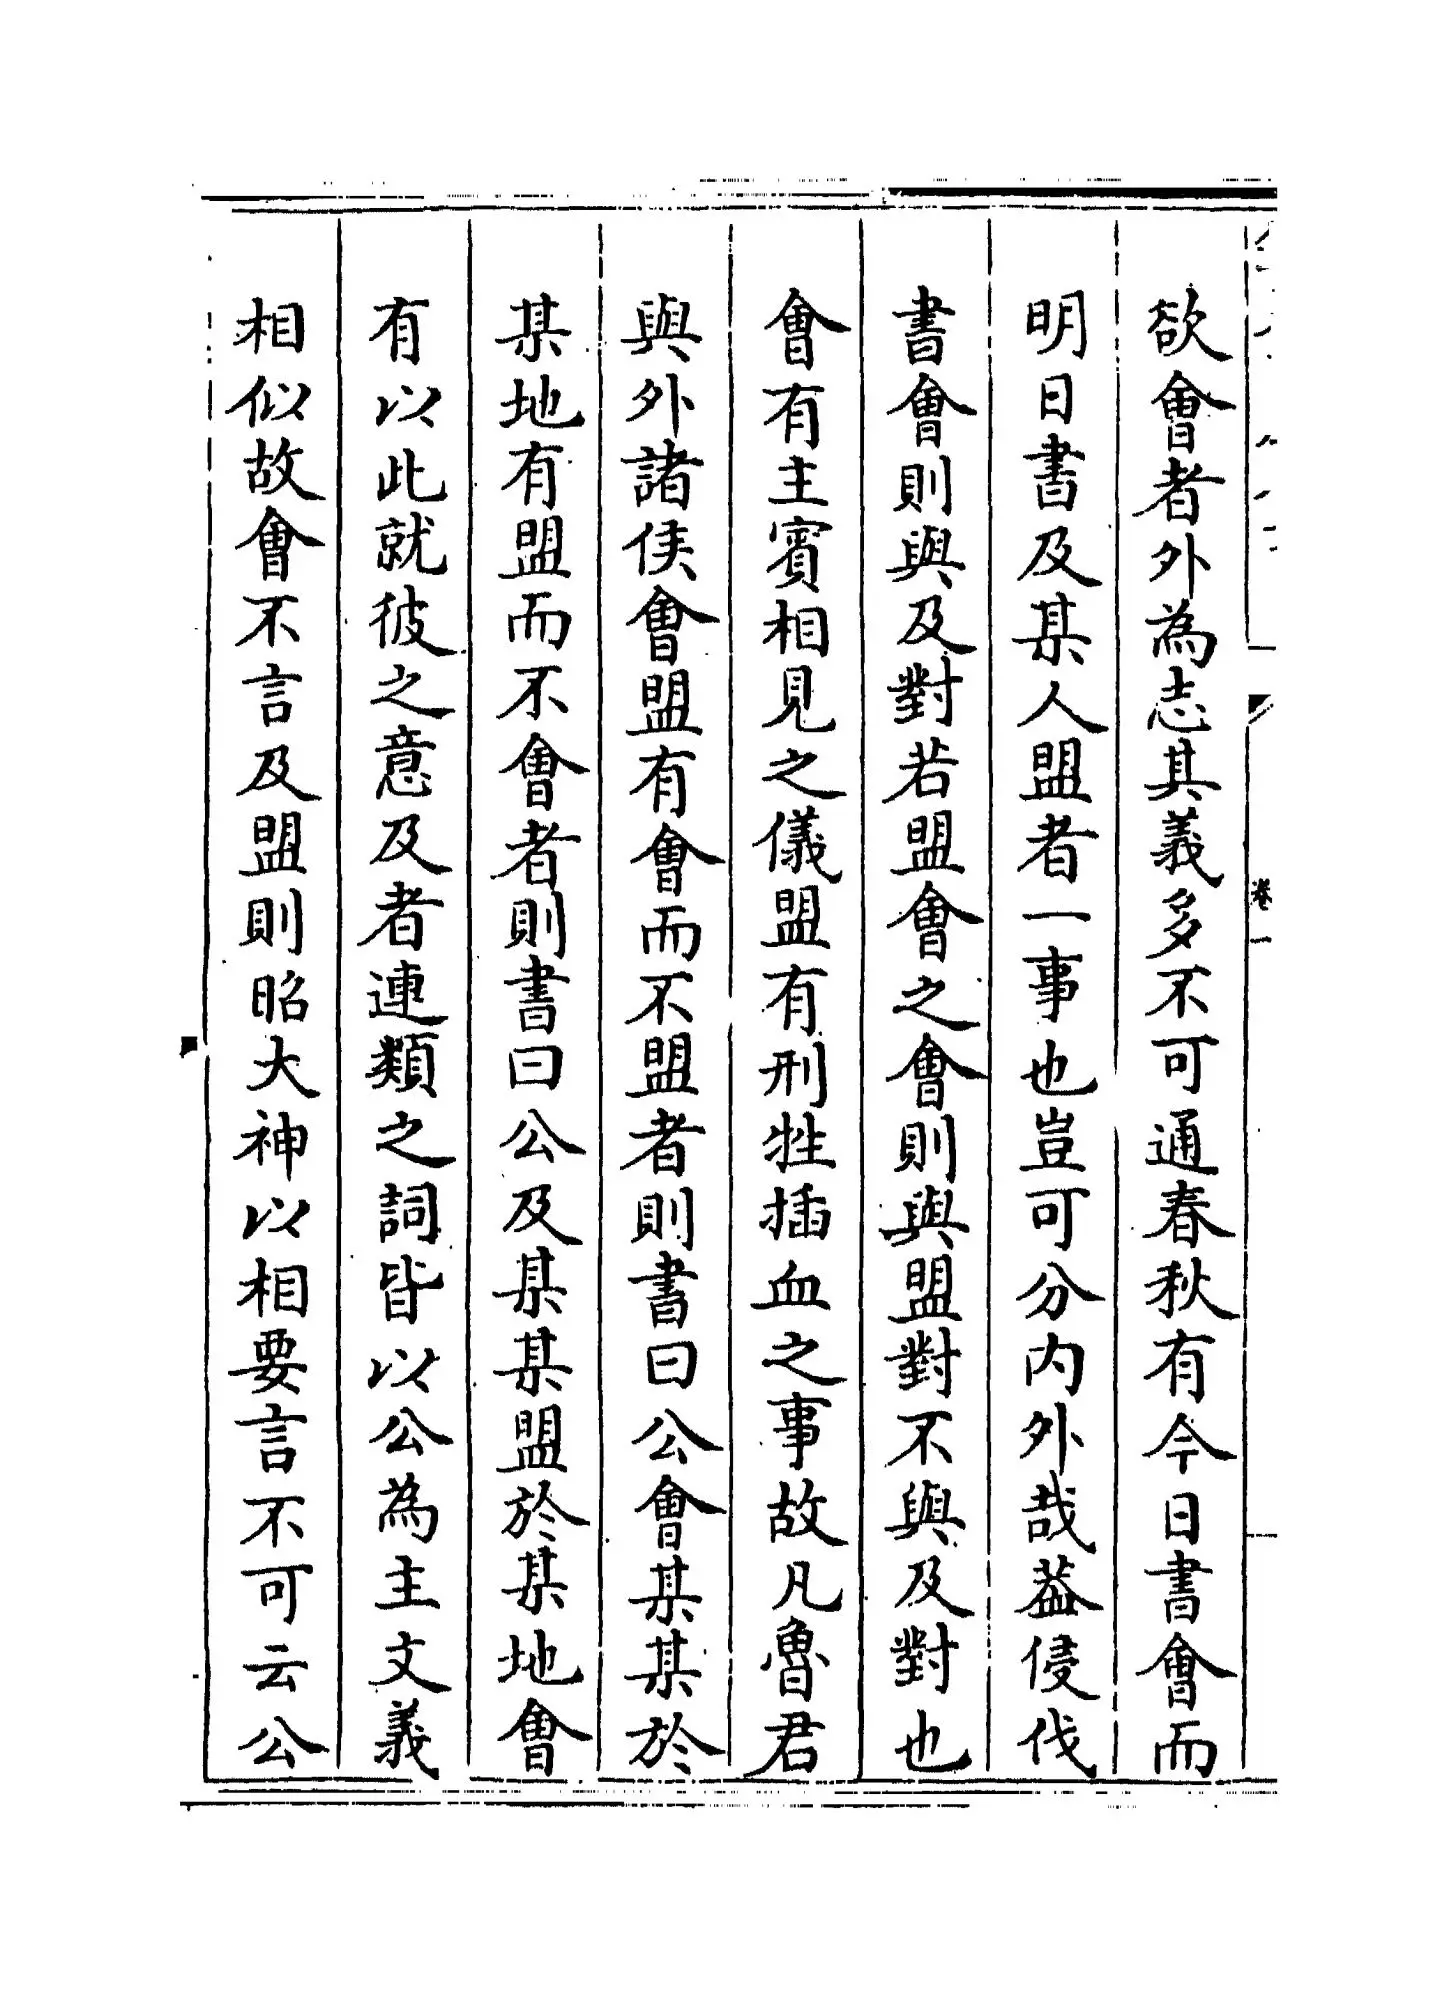 欲會者外為志其義多不可通春秋有今日書會而
明日書及某人盟者一事也豈可分内外哉葢侵伐
書會則與及對若盟會之會則與盟對不與及對也
會有主賓相見之儀盟有刑牲插血之事故凡魯君
與外諸侯會盟有會而不盟者則書曰公會某某於
某地有盟而不會者則書曰公及某某盟於某地會
有以此就彼之意及者連類之詞皆以公為主文義
相似故會不言及盟則昭大神以相要言不可云公
卷一